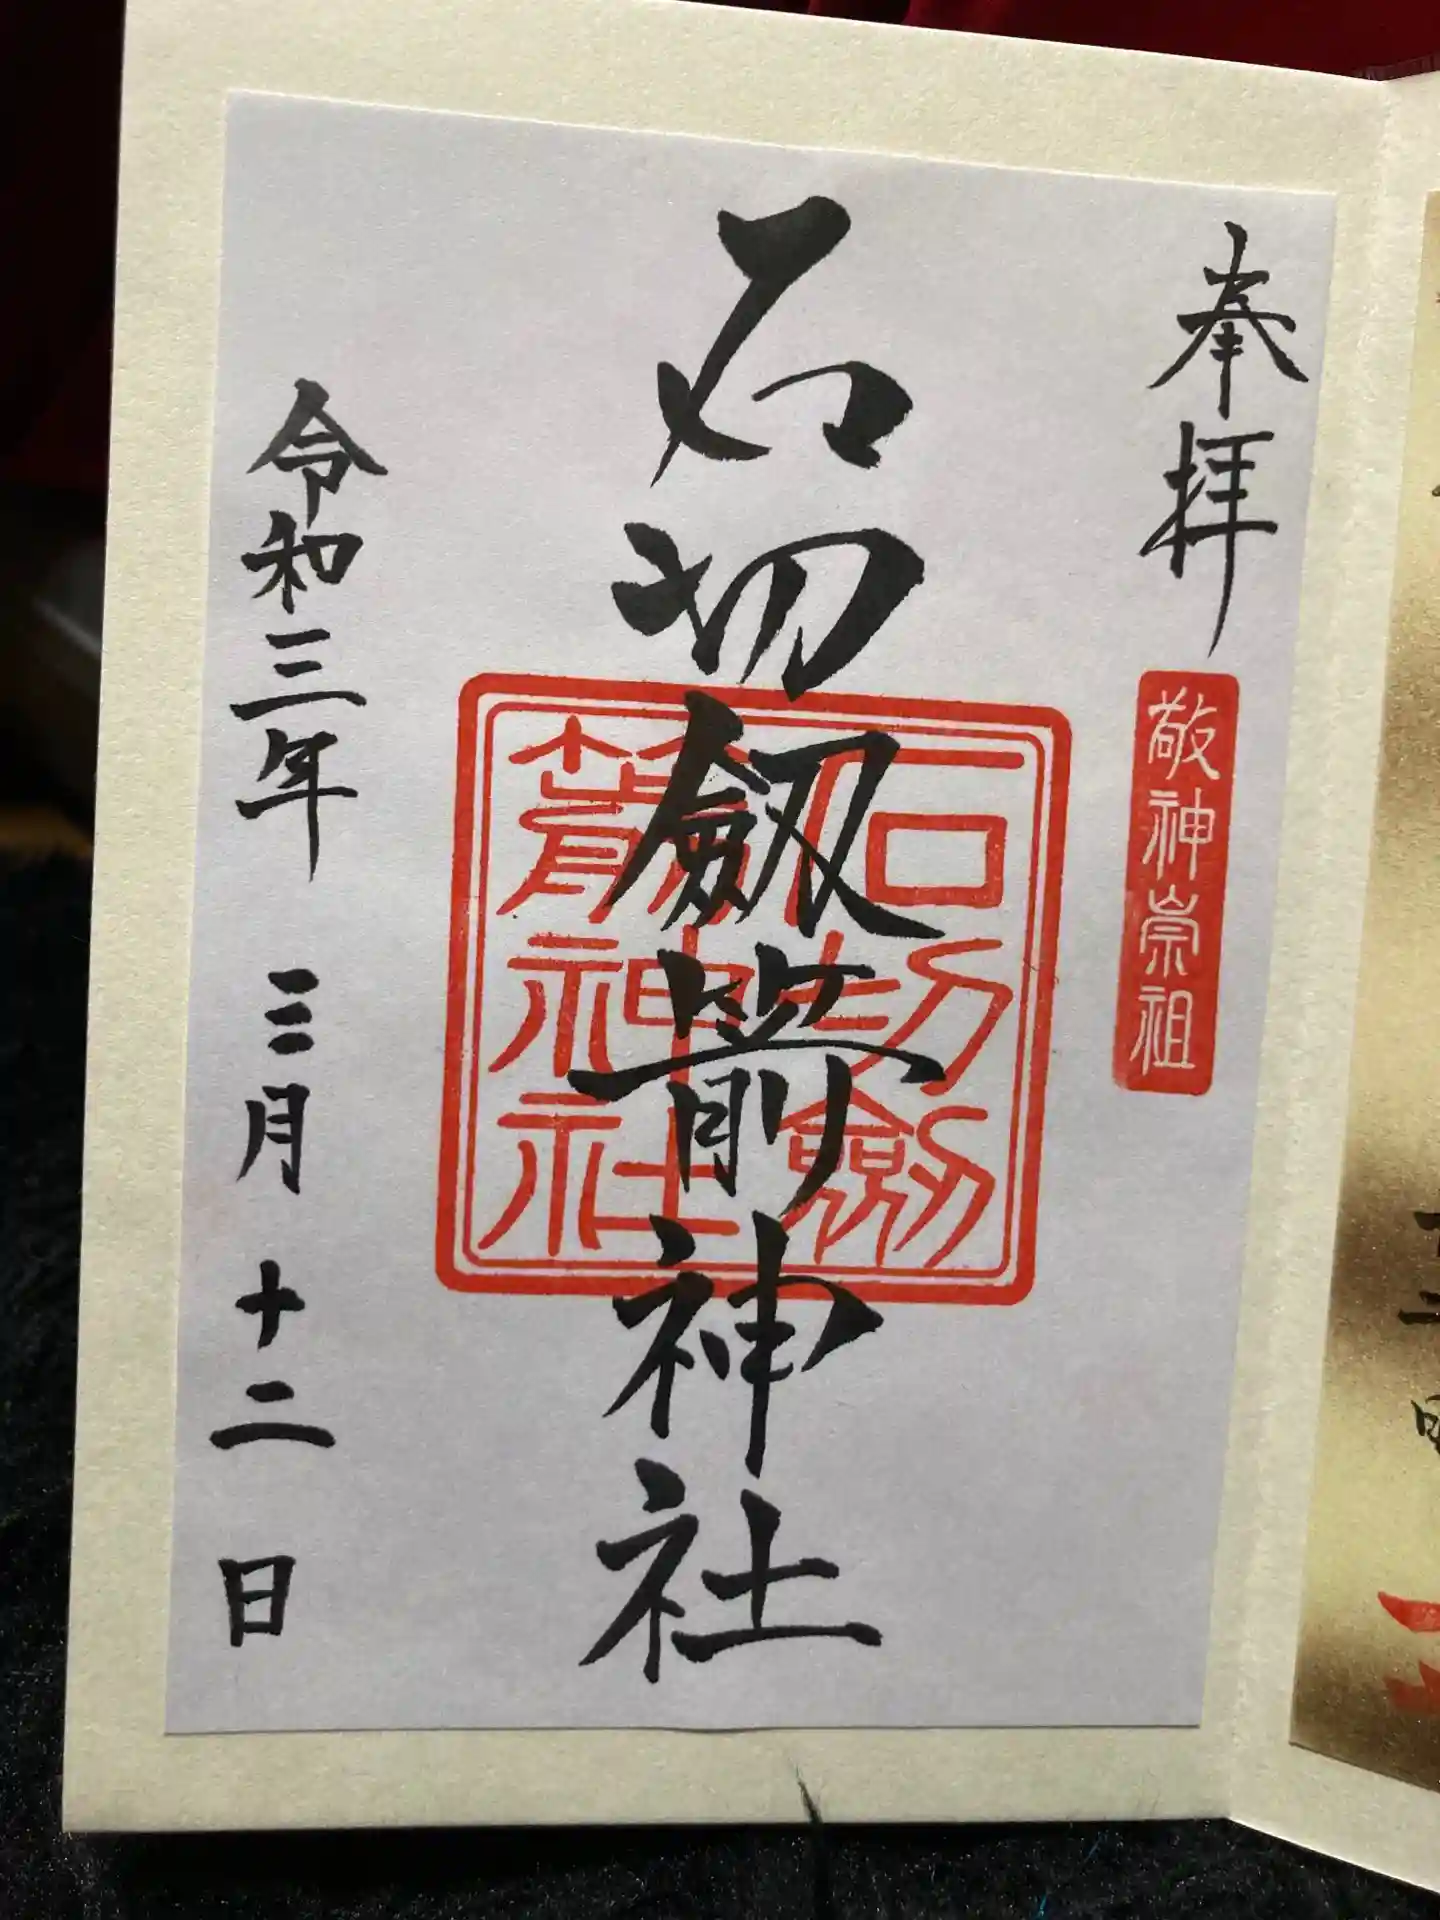 奉拝
敬神崇祖
石切劔箭神社
石切劔
箭神社
令和三年 三月 十二日